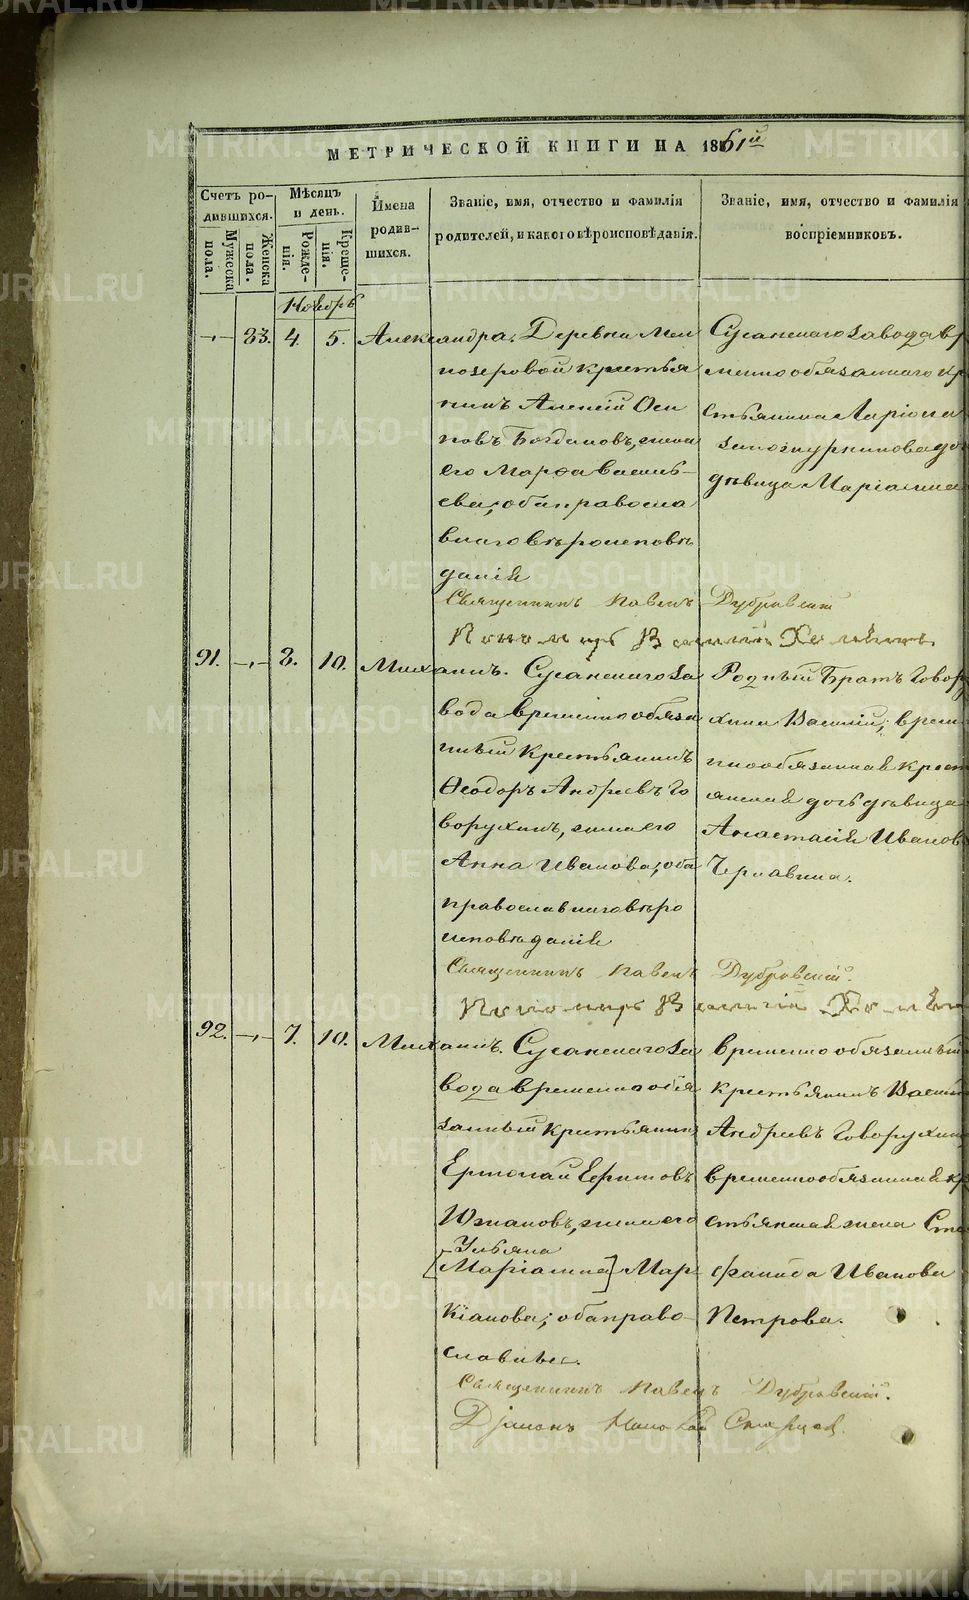 МЕТРИЧЕСКОЙ КНИГИ НА 1861й
Счетъ ро-
дившихся.
Мужеска
пола.
Женска
пола.
Мѣсяцъ
и день.
Рожде-
нія.
Креще-
нія.
Имена
родив-
шихся.
Званіе, имя, отчество и фамилія
родителей, и какого вѣроисповѣданія.
Званіе, имя, отчество и фамилія
воспріемниковъ.
Ноябрь
83. 4. 5. Александра. Деревни Мел
козеровой крестья
нинъ Алексій Оси
повъ Богдановъ, жена
его Марѳа Василь-
ева; оба православ
наго вѣроисповѣ
данія
Сусанскаго завода вр
менно обязаннаго кр
стьянина Ларіона
дѣвица Маріамна
Священникъ Павелъ Дубровскій
Пономарь Василій
91. 8. 10. Михаилъ. Сусанскаго За
вода временно обяза
нный Крестьянинъ
Ѳеодоръ Андреевъ Го
ворухинъ, жена его
Анна Иванова; оба
православнаго вѣро
исповѣданія
Родный Братъ Говор
хина Василій; врем
нно обязанная крест
янская дочь дѣвица
Анастасія Иванов
Чернавина.
Священникъ Павелъ Дубровскій.
Пономарь Василій
92. 7. 10. Михаилъ. Сусанскаго За
вода временно обя
занный крестьянинъ
Ермолай Ефимовъ
Южаковъ, жена его
Ульяна
[Маріамна] Мар-
кіанова; оба право-
славные.
временно обязанный
крестьянинъ Васил
Андреевъ Говорухин
временнообязанная кр
стьянская жена Сте
фанида Иванова
Петрова.
Священникъ Павелъ Дубровскій.
Діаконъ